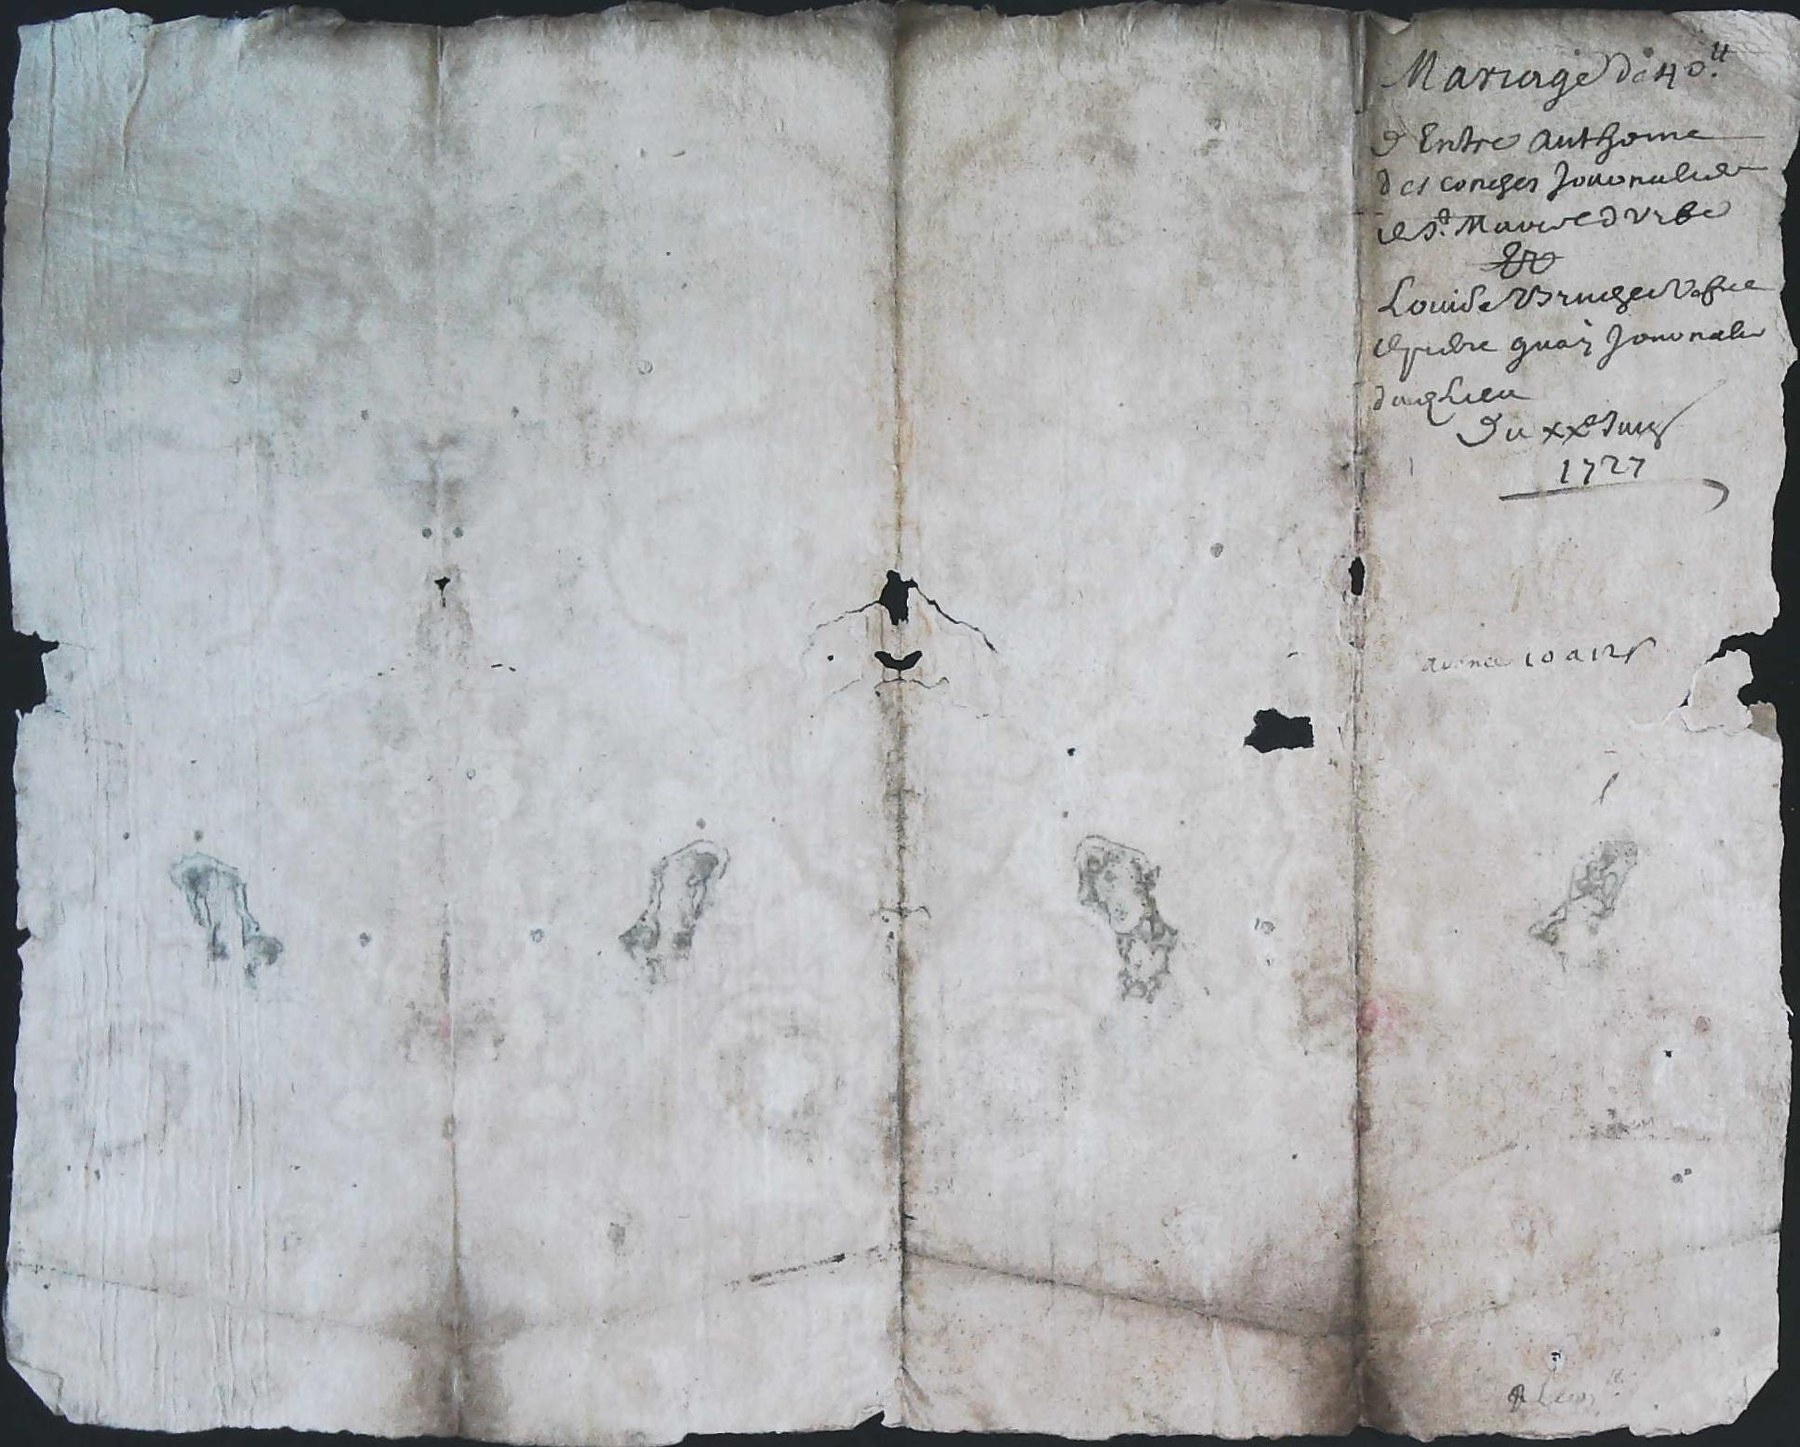 Mariage de 40.ll
D'Entre Anthoine
des conges Journalier
de St. Maurice d'Urbe
Et
Louise Bruger Vefve
de piere guay Journalier
dud Lieu
Du xxe Juin
1727
avance 10 a 12 s